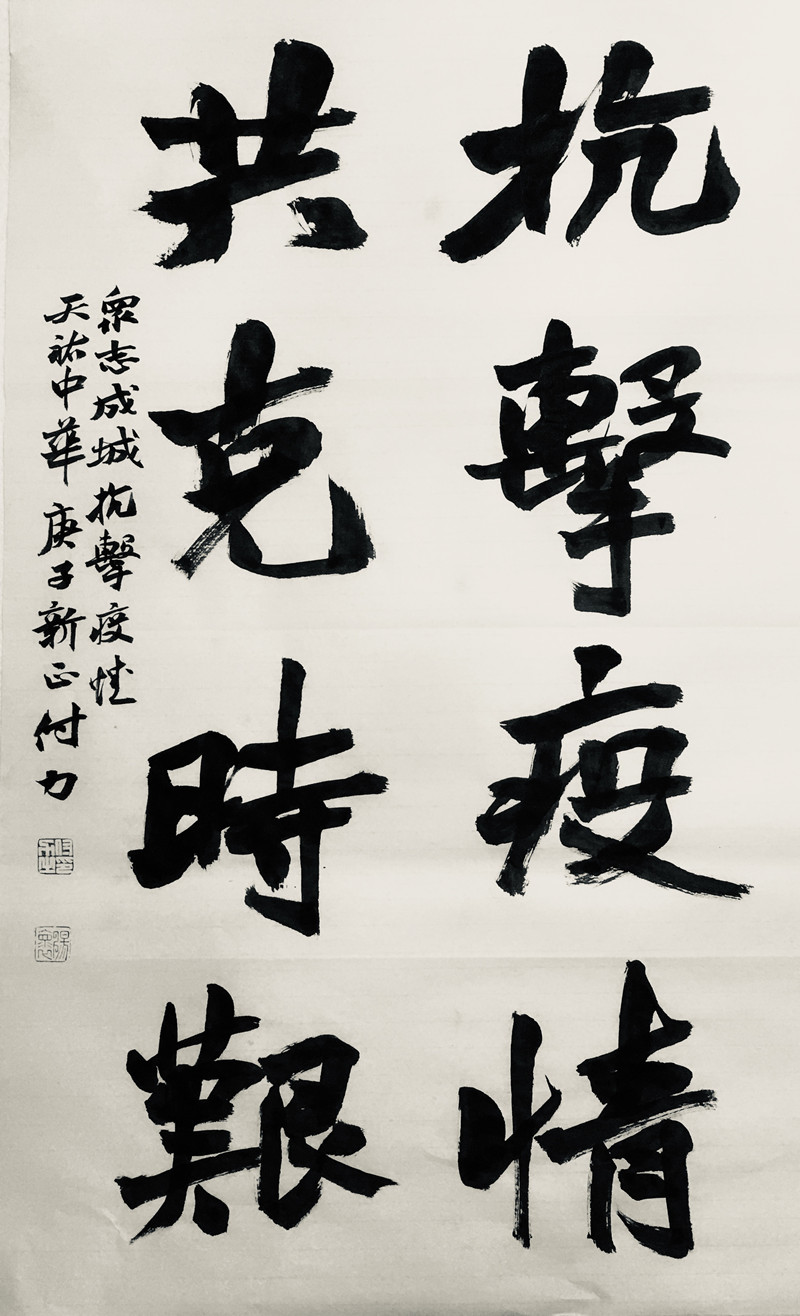 抗擊疫情
共克時艱
眾志成城抗擊疫情
天祐中華庚子新正付力